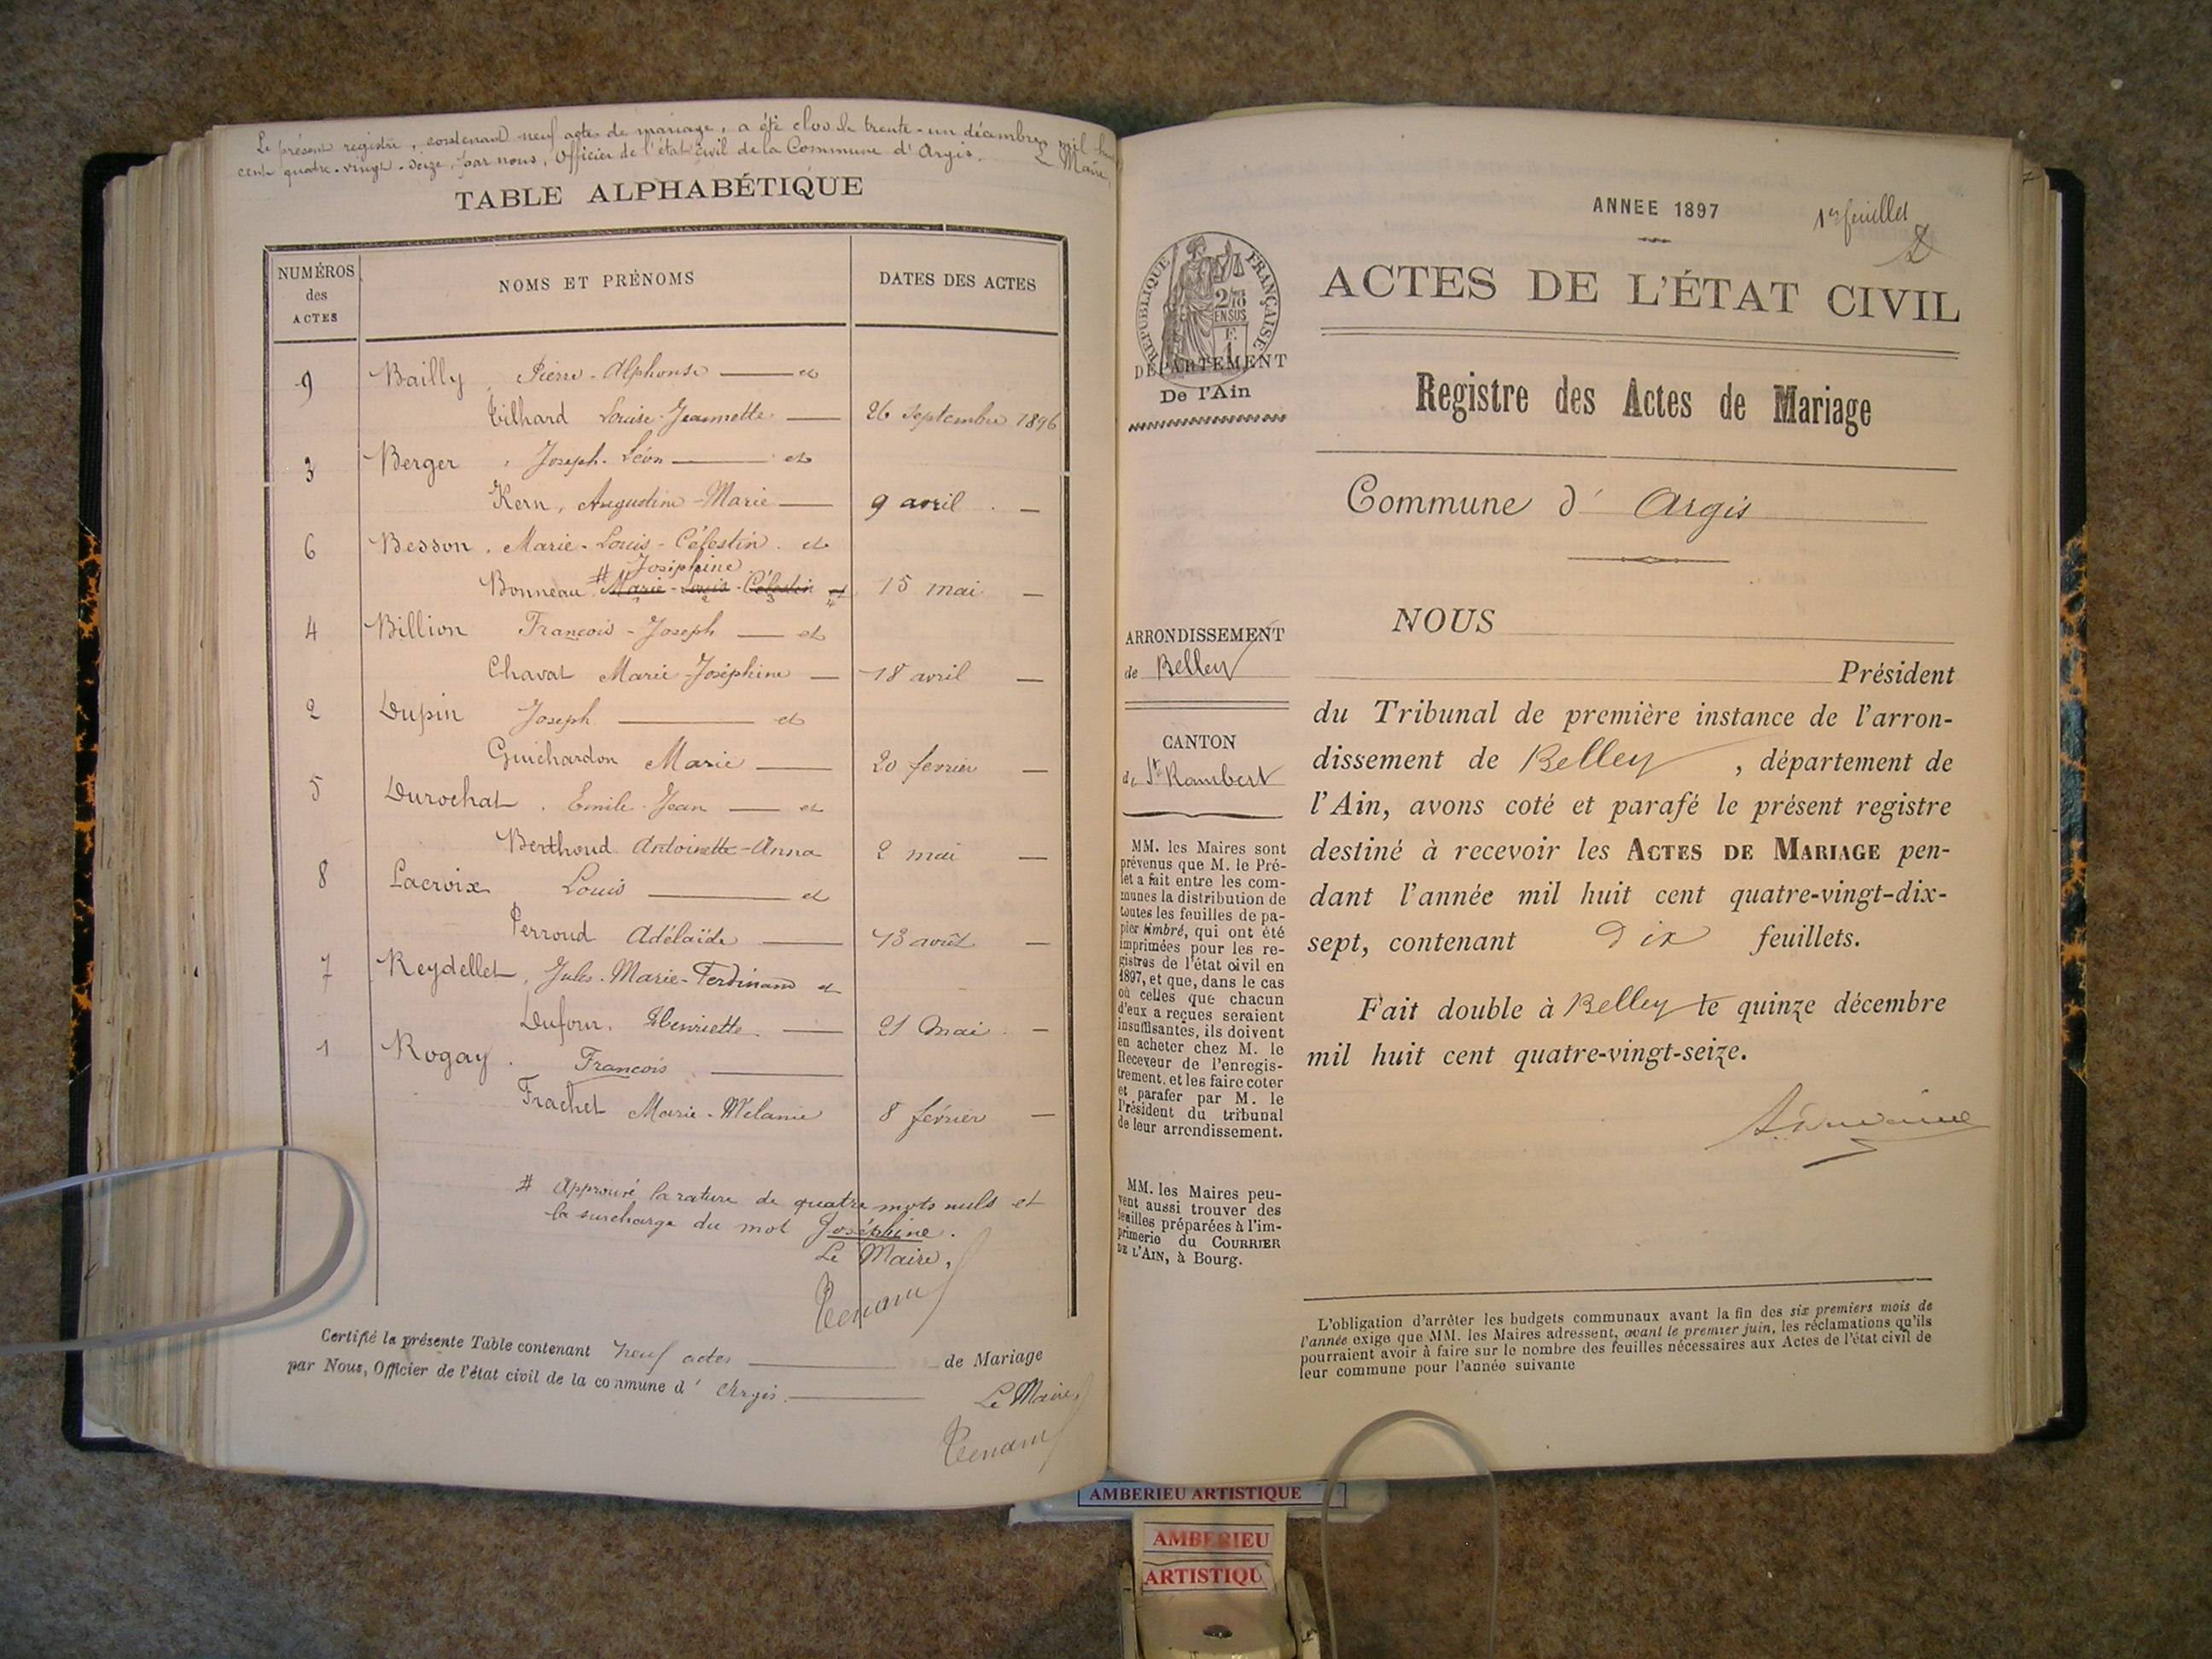 Le présent registre, contenant neuf actes de mariage, a été clos le trente-un décembre mil huit
cent quatre-vingt-seize, par nous, Officier de l'état civil de la Commune d'Argis.
Le Maire,
TABLE ALPHABÉTIQUE
NUMÉROS des ACTES
NOMS ET PRÉNOMS
DATES DES ACTES
9 Bailly, Pierre-Alphonse — et
Tilhard Louise-Jeannette — 26 Septembre 1896
3 Berger, Joseph-Léon — et
Kern, Augustine-Marie — 9 avril —
6 Besson, Marie-Louis-Célestin et
Joséphine
Bonneau # Marie-Louis-Célestin et 15 mai —
1 2 3 4
4 Billion François-Joseph — et
Chavat Marie-Joséphine — 18 avril —
2 Dupin Joseph — et
Guichardon Marie — 20 fevrier —
5 Durochat, Emile-Jean — et
Berthoud Antoinette-Anna 2 mai —
8 Lacroix Louis — et
Perroud Adélaïde — 13 août —
7 Reydellet, Jules-Marie-Ferdinand et
Dufour, Henriette — 21 Mai —
1 Rogay François —
Frachet Marie-Mélanie 8 février —
# Approuvé la rature de quatre mots nuls et
la surcharge du mot Joséphine.
Le Maire,
Certifié la présente Table contenant neuf actes — de Mariage
par Nous, Officier de l'état civil de la commune d' Argis. —
Le Maire,
ANNEE 1897
1er feuillet
RÉPUBLIQUE FRANÇAISE
2/10
EN SUS
ACTES DE L'ÉTAT CIVIL
DÉPARTEMENT
De l'Ain
Registre des Actes de Mariage
Commune d' Argis
ARRONDISSEMENT
de Belley
CANTON
de St Rambert
MM. les Maires sont
prévenus que M. le Pré-
fet a fait entre les com-
munes la distribution de
toutes les feuilles de pa-
pier timbré, qui ont été
imprimées pour les re-
gistres de l'état civil en
1897, et que, dans le cas
où celles que chacun
d'eux a reçues seraient
insuffisantes, ils doivent
en acheter chez M. le
Receveur de l'enregis-
trement, et les faire coter
et parafer par M. le
Président du tribunal
de leur arrondissement.
MM. les Maires peu-
vent aussi trouver des
feuilles préparées à l'im-
primerie du COURRIER
DE L'AIN, à Bourg.
NOUS
Président
du Tribunal de première instance de l'arron-
dissement de Belley, département de
l'Ain, avons coté et parafé le présent registre
destiné à recevoir les ACTES DE MARIAGE pen-
dant l'année mil huit cent quatre-vingt-dix-
sept, contenant dix feuillets.
Fait double à Belley le quinze décembre
mil huit cent quatre-vingt-seize.
L'obligation d'arrêter les budgets communaux avant la fin des six premiers mois de
l'année exige que MM. les Maires adressent, avant le premier juin, les réclamations qu'ils
pourraient avoir à faire sur le nombre des feuilles nécessaires aux Actes de l'état civil de
leur commune pour l'année suivante
AMBERIEU ARTISTIQUE
AMBERIEU
ARTISTIQU